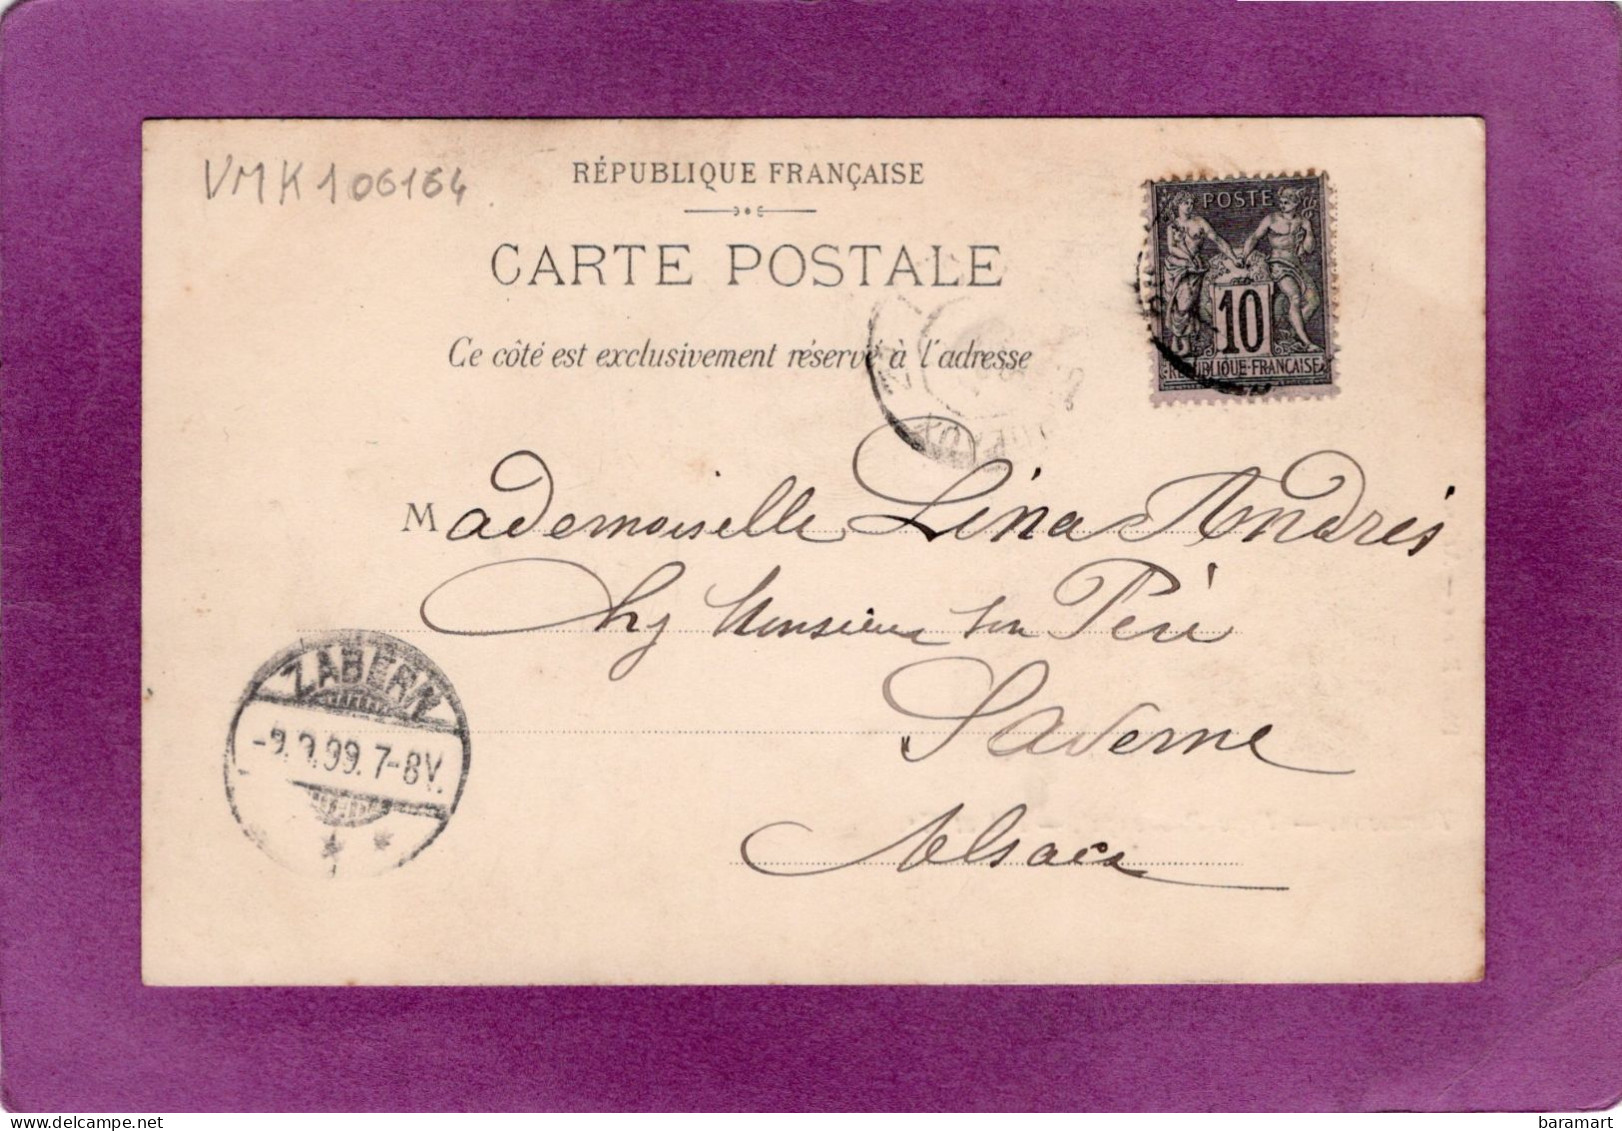 VMK106164
RÉPUBLIQUE FRANÇAISE
CARTE POSTALE
Ce côté est exclusivement réservé à l'adresse
POSTE
10
REPUBLIQUE·FRANÇAISE
Mademoiselle Lina Andrès
Chz Monsieur son Père
Saverne
Alsace
ZABERN
-9.9.99.7-8V.
baramart